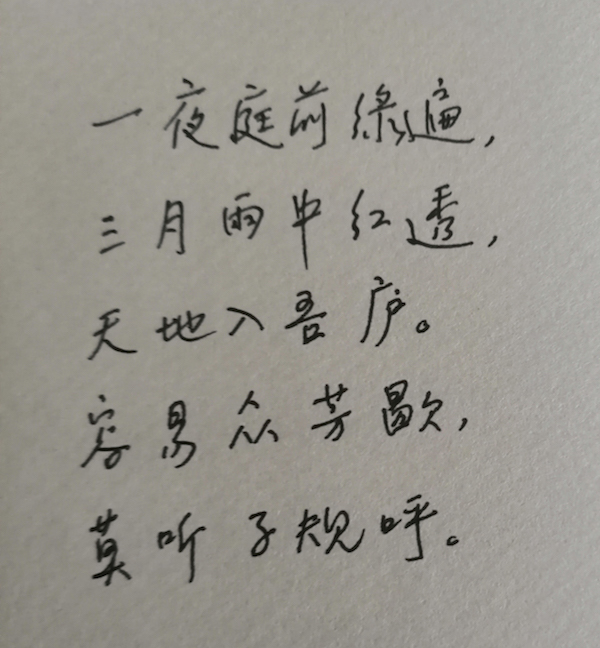 一夜庭前绿遍，
三月雨中红透，
天地入吾庐。
容易众芳歇，
莫听子规呼。